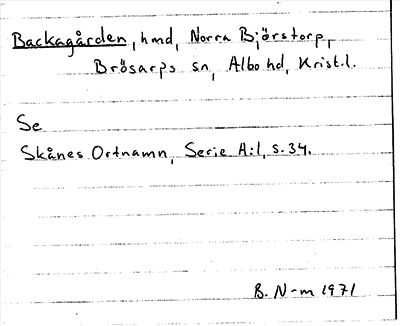 Backagården, hmd, Norra Björstorp,
Brösarps sn, Albo hd, Krist.l.
Se
Skånes Ortnamn, Serie A:1, s.34.
B. N-m 1971